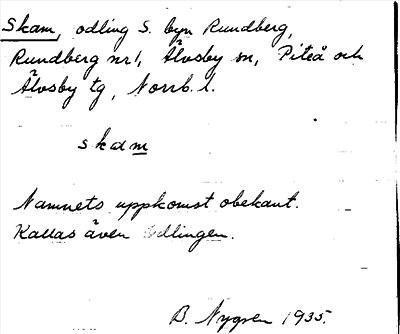 Skam, odling S. byn Rundberg,
Rundberg nr 1, Älvsby sn, Piteå och
Älvsby tg, Norrb. l.
skam
Namnets uppkomst obekant.
Kallas även Odlingen.
B. Nygren 1935.